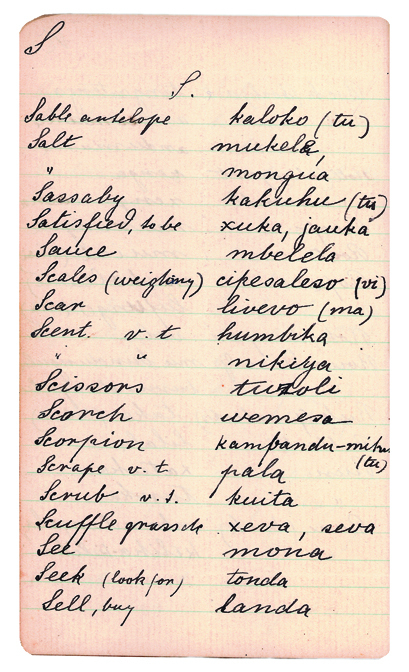 S
S.
Sable antelope kaloko (tu)
Salt mukele,
" mongua
Sassaby kakuhu (tu)
Satisfied, to be xuka, jauka
Sauce mbelela
Scales (weighing) cipesaleso (vi)
Scar livevo (ma)
Scent. v.t humbika
" " nikiya
Scissors tuzoli
Scorch wemesa
Scorpion kambandu-
(tu)
Scrape v.t pala
Scrub v.t. kuita
Scuffle xeva, seva
See mona
Seek (look for) tonda
Sell, buy landa